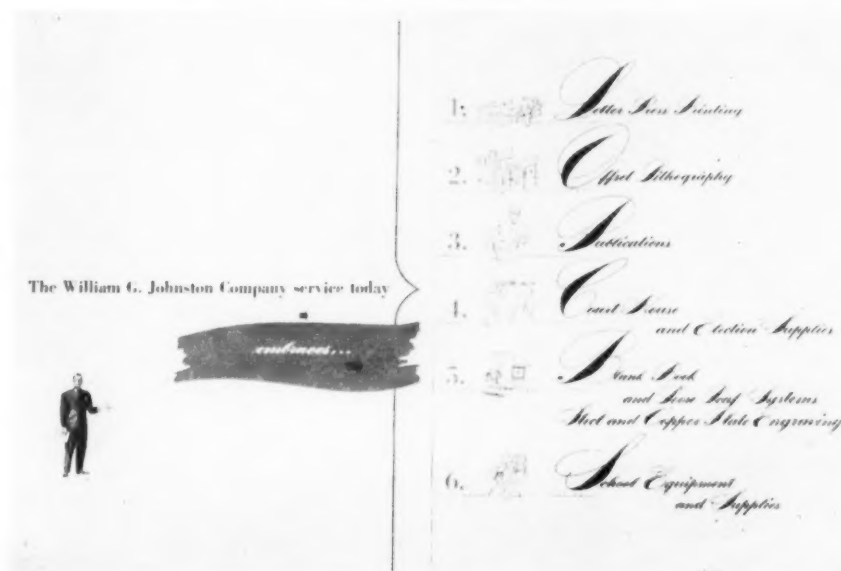 The William G. Johnston Company service today
embraces...
1. Letter Press Printing
2. Offset Lithography
3. Publications
4. Court House
and Election Supplies
5. Blank Book
and Loose Leaf Systems
Steel and Copper Plate Engraving
6. School Equipment
and Supplies